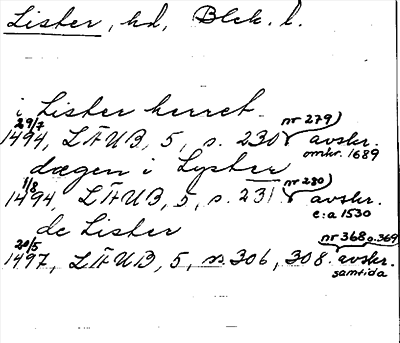 Lister, hd, Blek. l.
i Lister herret.
29/7 1494, LÄUB, 5, s. 230 (nr 279) avskr. omkr. 1689
dægen i Lyster
1/8 1494, LÄUB, 5, s. 231 (nr 280) avskr. e: a 1530
de Lister
20/5 1497, LÄUB, 5, ss. 306, 308. (nr 368 o. 369) avskr. samtida